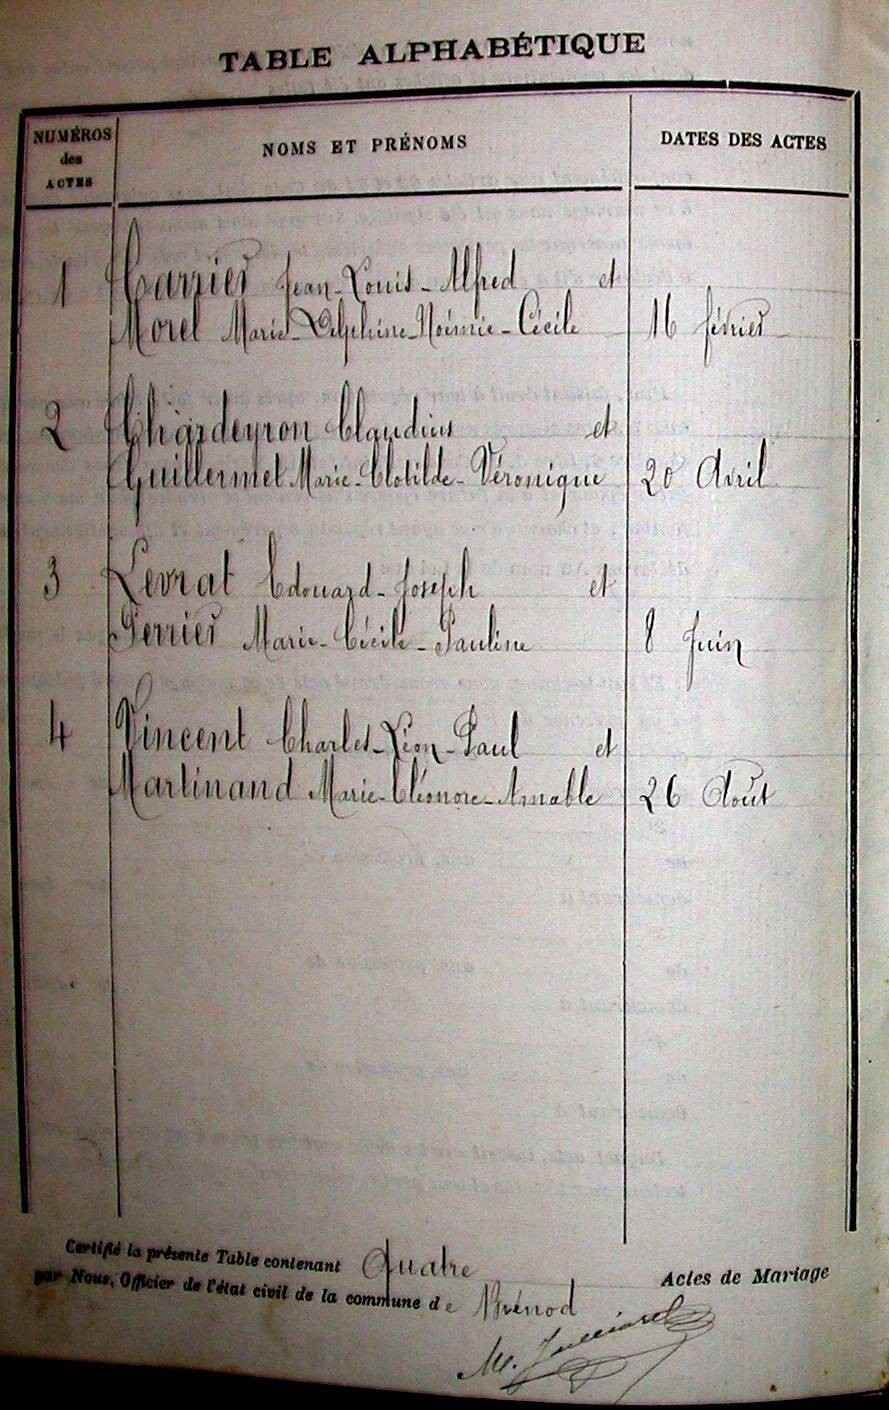 TABLE ALPHABÉTIQUE
NUMÉROS
des
ACTES
NOMS ET PRÉNOMS
DATES DES ACTES
1 Carrier Jean-Louis-Alfred et
Morel Marie-Delphine-Noémie-Cécile 16 février
2 Chardeyron Claudius et
Guillermet Marie-Clotilde-Véronique 20 Avril
3 Levrat Edouard-Joseph et
Perrier Marie-Cécile-Pauline 8 Juin
4 Vincent Charles-Léon-Paul et
Martinand Marie-Cléonore-Amable 26 Août
Certifié la présente Table contenant Quatre Actes de Mariage
par Nous, Officier de l'état civil de la commune de Brénod